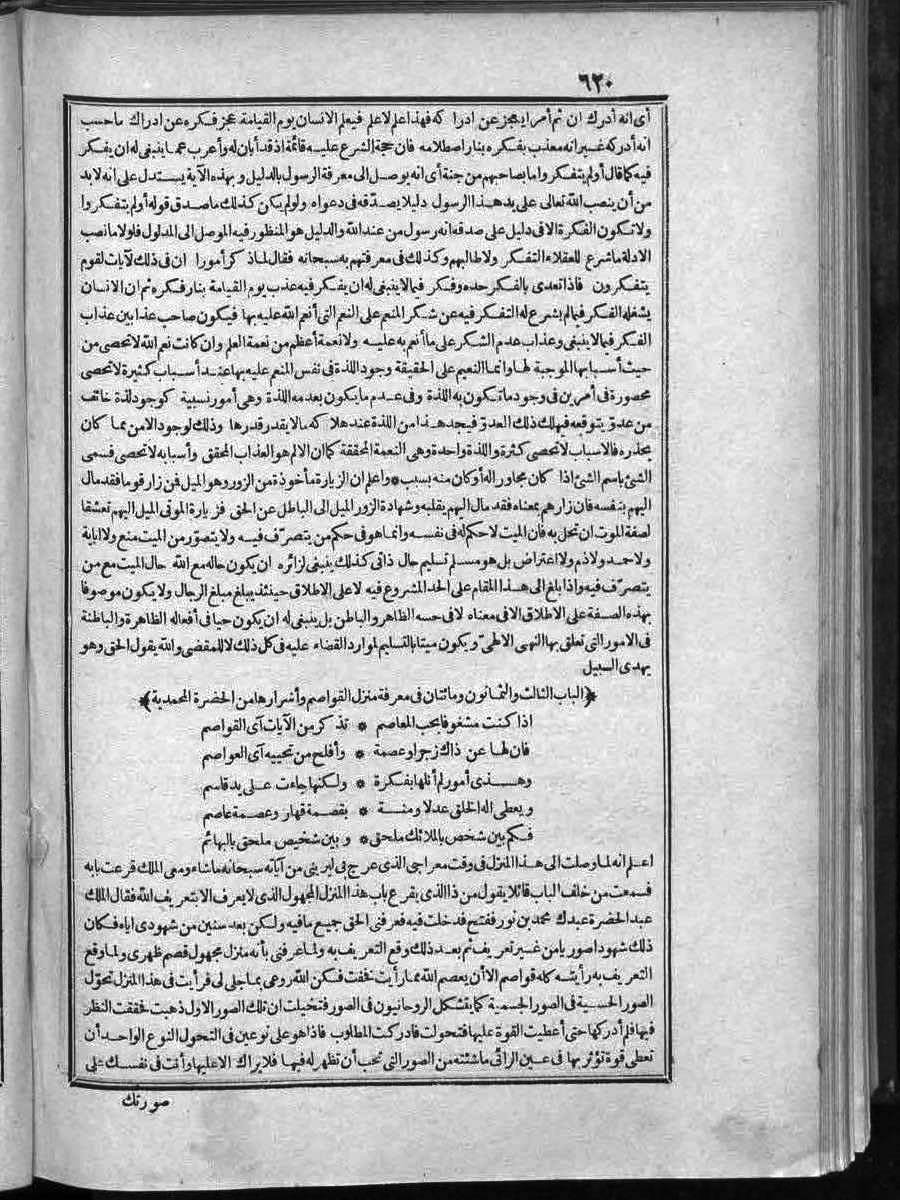 ٦٢٠
أى انه أدرك ان ثم أمرا يعجز عن ادراكه فهذا علم لاعلم فيعلم الانسان يوم القيامة عجز فكره عن ادراك ماحسب
انه أدركه غير انه معذب بفكره بنار اصطلامه فان حجة الشرع عليه قائمة اذ قد أبان له وأعرب عما ينبغى له ان يفكر
فيه كما قال أولم يتفكروا ما بصاحبهم من جنة أى انه يوصل الى معرفة الرسول بالدليل وبهذه الآية يستدل على انه لابد
من أن ينصب الله تعالى على يد هذا الرسول دليلا يصدّقه فى دعواه ولولم يكن كذلك ماصدق قوله أولم يتفكروا
ولا تكون الفكرة الا فى دليل على صدقه انه رسول من عند الله والدليل هو المنظور فيه الموصل الى المدلول فلولا ما نصب
الادلة ماشرع للعقلاء التفكر ولا طالبهم وكذلك فى معرفتهم به سبحانه فقال لما ذكر أمورا ان فى ذلك لآيات لقوم
يتفكرون فاذا تعدى بالفكر حده وفكر فيما لا ينبغى له ان يفكر فيه عذب يوم القيامة بنار فكره ثم ان الانسان
يشغله الفكر فيما لم يشرع له التفكر فيه عن شكر المنعم على النعم التى أنعم الله عليه بها فيكون صاحب عذابين عذاب
الفكر فيما لا ينبغى وعذاب عدم الشكر على ما أنعم به عليه ولا نعمة أعظم من نعمة العلم وان كانت نعم الله لا تحصى من
حيث أسبابها الموجبة لها وانما النعيم على الحقيقة وجود اللذة فى نفس المنعم عليه بها عند أسباب كثيرة لا تحصى
محصورة فى أمرين فى وجود ما تكون به اللذة وفى عدم ما يكون بعدمه اللذة وهى أمور نسبية كوجود لذة خائف
من عدوّ يتوقعه فهلك ذلك العدوّ فيجد هذا من اللذة عند هلاكه مالا يقدر قدرها وذلك لوجود الامن مما كان
يحذره فالاسباب لا تحصى كثرة واللذة واحدة وهى النعمة المحققة كما ان الالم هو العذاب المحقق وأسبابه لا تحصى فسمى
الشئ باسم الشئ اذا كان مجاورا له أو كان منه بسبب * واعلم ان الزيارة مأخوذة من الزور وهو الميل فمن زار قوما فقد مال
اليهم بنفسه فان زارهم بمعناه فقد مال اليهم بقلبه وشهادة الزور الميل الى الباطل عن الحق فزيارة الموتى الميل اليهم تعشقا
لصفة الموت ان تحل به فان الميت لاحكم له فى نفسه وانما هو فى حكم من يتصرّف فيه ولا يتصوّر من الميت منع ولا اباية
ولاحمد ولاذم ولا اعتراض بل هو مسلم تسليم حال ذاتى كذلك ينبغى لزائره ان يكون حاله مع الله حال الميت مع من
يتصرّف فيه واذا بلغ الى هذا المقام على الحد المشروع فيه لا على الاطلاق حينئذ يبلغ مبلغ الرجال ولا يكون موصوفا
بهذه الصفة على الاطلاق الا فى معناه لا فى حسه الظاهر والباطن بل ينبغى له ان يكون حيا فى أفعاله الظاهرة والباطنة
فى الامور التى تعلق بها النهى الالهىّ ويكون ميتا بالتسليم لموارد القضاء عليه فى كل ذلك لا للمقضى والله يقول الحق وهو
يهدى السبيل
﴿الباب الثالث والثمانون ومائتان فى معرفة منزل القواصم وأسرارها من الحضرة المحمدية﴾
اذا كنت مشغوفا بحب المعاصم * تذكر من الآيات آى القواصم
فان لها عن ذاك زجرا وعصمة * وأفلح من تحييه آى العواصم
وهذى أمور لم أنلها بفكرة * ولكنها جاءت على يد قاسم
ويعطى اله الخلق عدلا ومنة * بقصمة قهار وعصمة عاصم
فكم بين شخص بالملائك ملحق * وبين شخيص ملحق بالبهائم
اعلم انه لما وصلت الى هذا المنزل فى وقت معراجى الذى عرج فى ليرينى من آياته سبحانه ماشاء ومعى الملك قرعت بابه
فسمعت من خلف الباب قائلا يقول من ذا الذى يقرع باب هذا المنزل المجهول الذى لا يعرف الا بتعريف الله فقال الملك
عبد الحضرة عبدك محمد بن نور ففتح فدخلت فيه فعرفنى الحق جميع مافيه ولكن بعد سنين من شهودى اياه فكان
ذلك شهودا صوريا من غير تعريف ثم بعد ذلك وقع التعريف به ولما عرفنى بأنه منزل مجهول قصم ظهرى ولما وقع
التعريف به رأيته كله قواصم الا أن يعصم الله مما رأيت فخفت فسكن الله روعى بما جلى لى فرأيت فى هذا المنزل تحوّل
الصور الحسية فى الصور الجسمية كما يتشكل الروحانيون فى الصور فتخيلت ان تلك الصور الاول ذهبت فحققت النظر
فيها فلم أدركها حتى أعطيت القوة عليها فتحولت فادركت المطلوب فاذا هو على نوعين فى التحول النوع الواحد أن
تعطى قوة تؤثر بها فى عين الرائى ماشئته من الصور التى تحب أن تظهر له فيها فلا يراك الا عليها وأنت فى نفسك على
صورتك